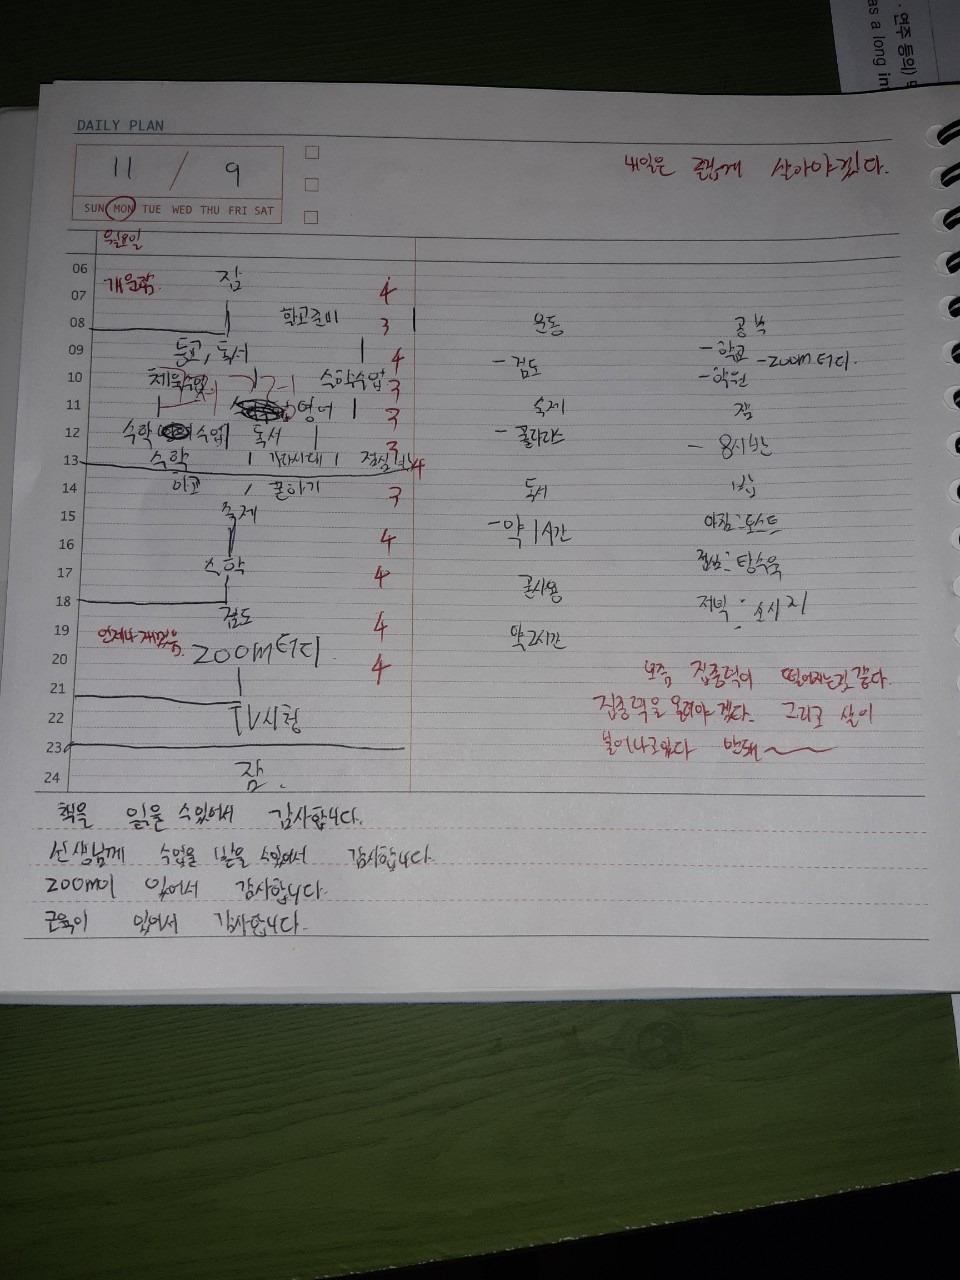 연주 등의)
as a long in
DAILY PLAN
11 / 9
내일은 즐겁게 살아야겠다.
SUN MON TUE WED THU FRI SAT
월요일
06 개운함. 잠
07 4
08 학교준비 3 운동 공부
09 등교, 독서 4 - 검도 - 학교 - ZOOM 터디.
10 체육수업 수학수업 3 - 학원
11 영어 3 숙제 잠
12 수학 수업 독서 3 - 8시간
13 수학 점심 4
14 하교 3 독서 밥
15 숙제 - 약 1시간 아침:토스트
16 4 점심:탕수육
17 수학 4 폰사용
18 저녁:소시지
19 언제나 재밌음. 검도 4 약2시간
20 ZOOM터디 4
21 요즘 집중력이 떨어지는것 같다.
22 TV시청 집중력을 올려야 겠다. 그리고 살이
23 불어나고있다 안돼~
24 잠.
책을 읽을 수있어서 감사합니다.
선생님께 수업을 받을 수있어서 감사합니다.
ZOOM이 있어서 감사합니다.
근육이 있어서 감사합니다.